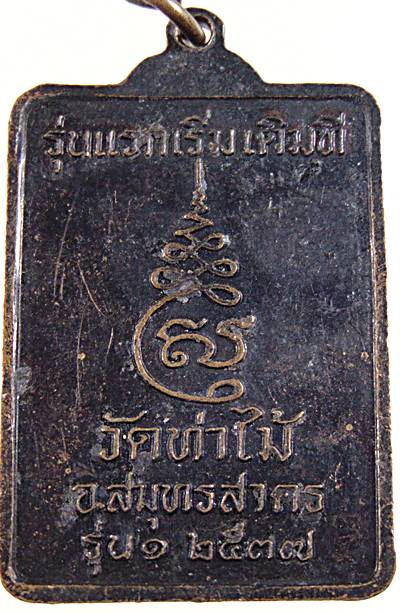 รุ่นแรกเริ่มเดิมที
วัดท่าไม้
จ.สมุทรสาคร
รุ่น ๑ ๒๕๓๗